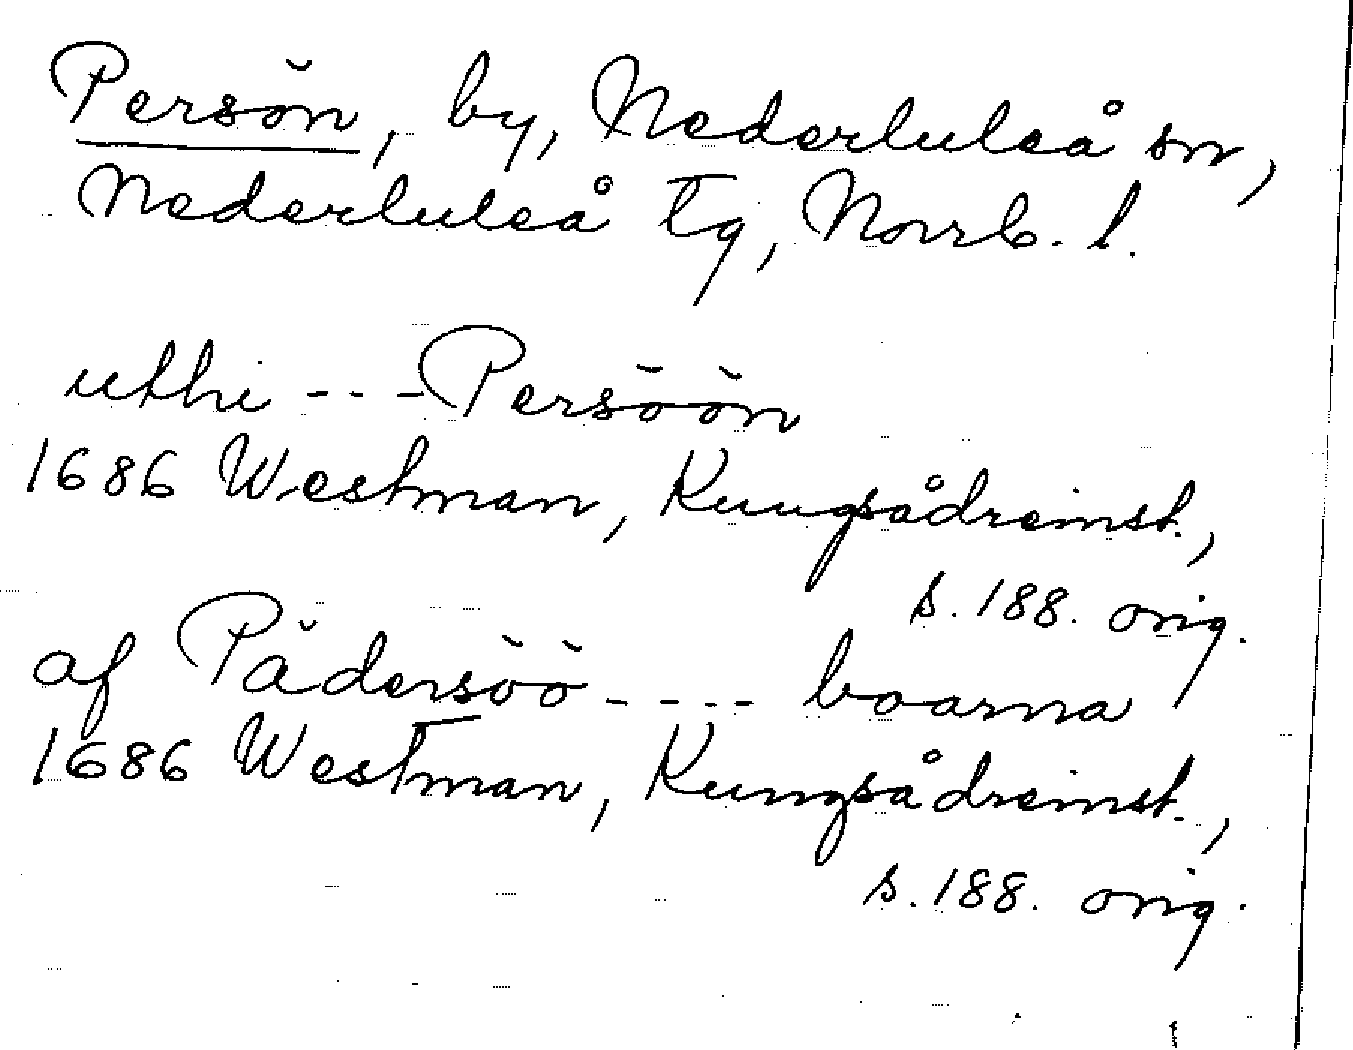 Persön, by, Nederluleå sn,
Nederluleå tg, Norrb. l.
uthi - - - Persöön
1686 Westman, Kungsådreinst.,
s. 188. orig.
af Pädersöö - - - - boarna
1686 Westman, Kungsådreinst.,
s. 188. orig.